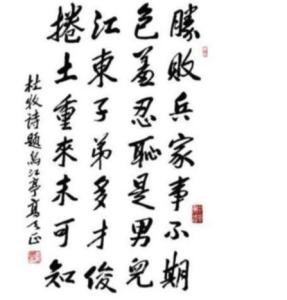 勝敗兵家事不期
包羞忍恥是男兒
江東子弟多才俊
捲土重來未可知
杜牧詩題烏江亭